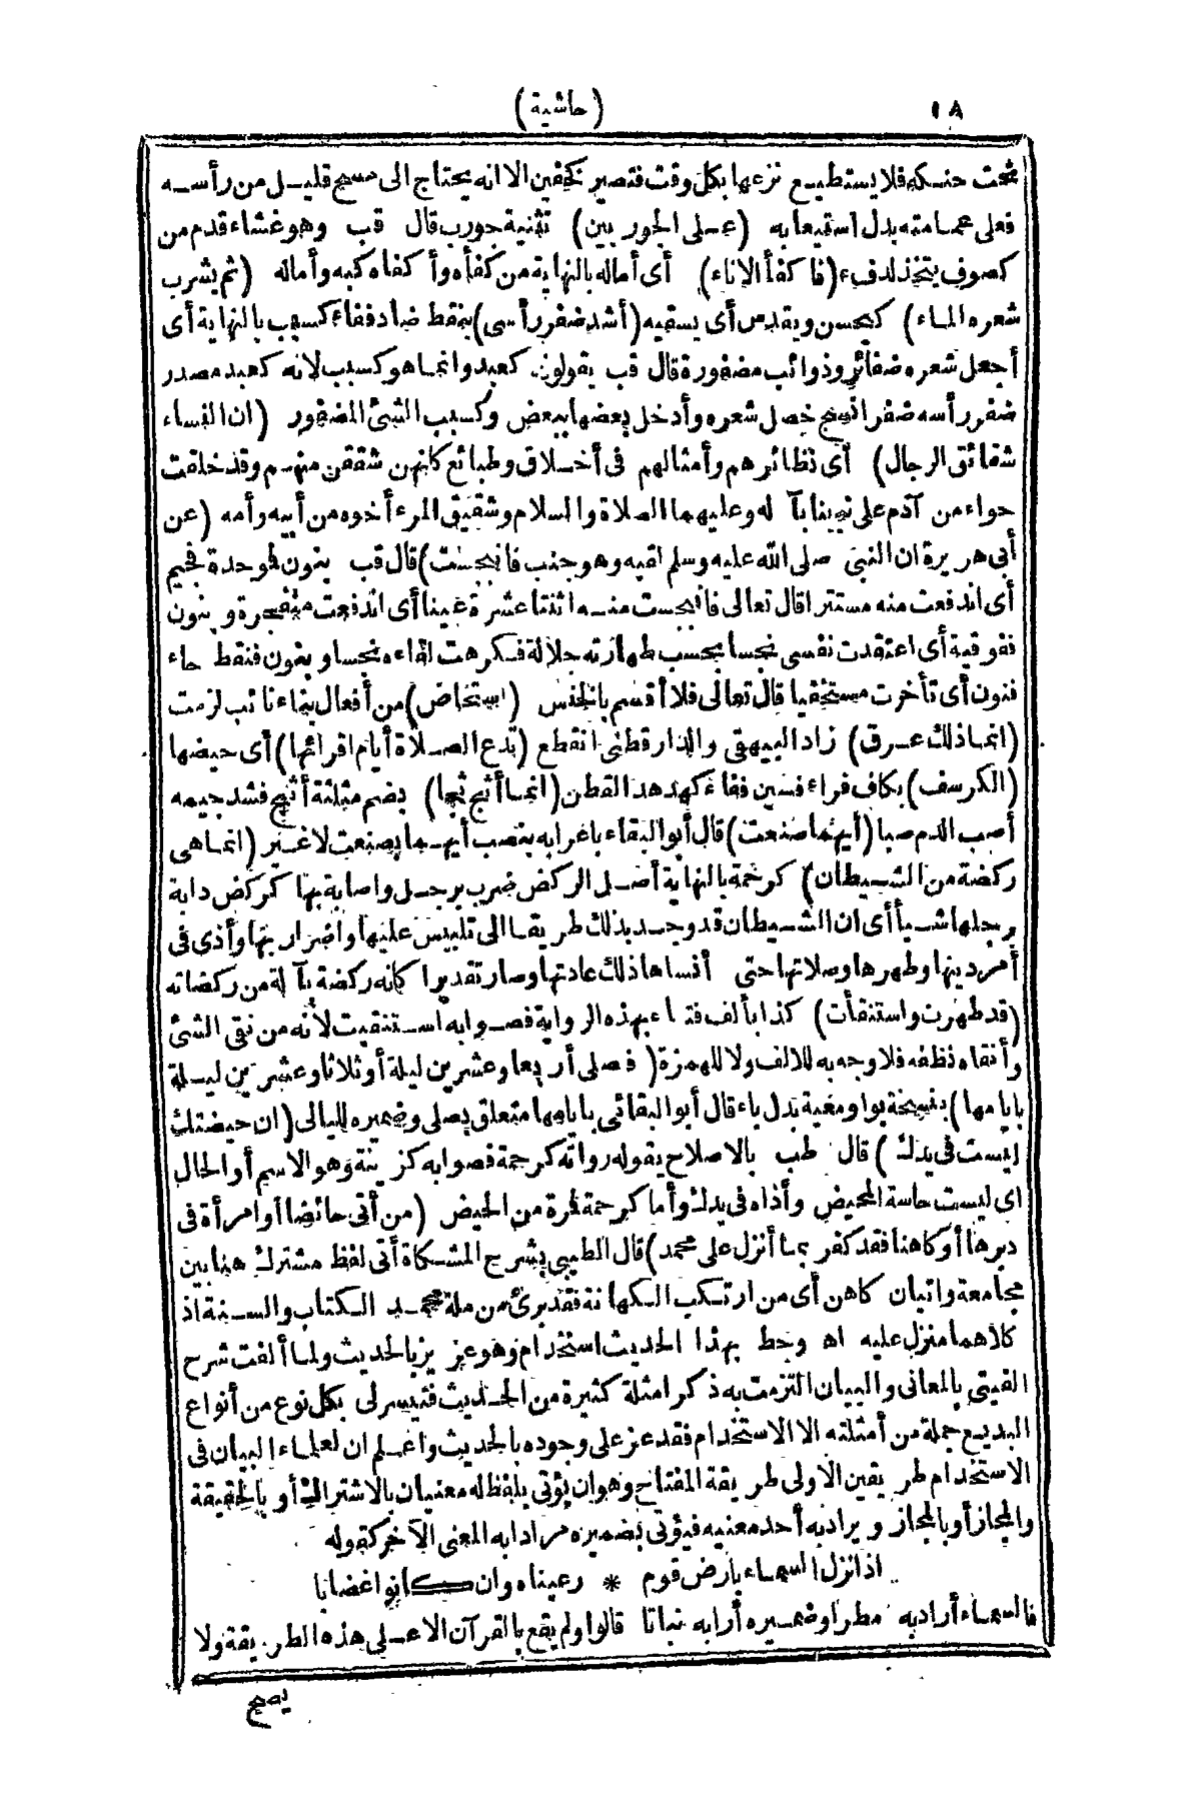 ١٨ (حاشية)
تحت حنكه فلا يستطيع نزعها بكل وقت فتصير كخفين الا انه يحتاج الى مسح قليل من رأسه
فعلى عمامته بدل استيعابه (على الجوربين) تثنية جورب قال قب وهو غشاء قدم من
كصوف يتخذ لدفء (فا كفأ الاناء) أى أماله بالنهاية من كفأه وأ كفاه كبه وأماله (ثم يشرب
شعره الماء) كيحسن ويقدس أى يسقيه (أشد ضفر رأسى) بنقط ضاد ففاء كسبب بالنهاية أى
أجعل شعره ضفائر وذوائب مضفورة قال قب يقولون كعبد وانما هو كسبب لانه كعبد مصدر
ضفر رأسه ضفرا نسج خصل شعره وأدخل بعضها ببعض وكسبب الشئ المضفور (ان النساء
شقائق الرجال) أى نظائرهم وأمثالهم فى أخلاق وطبائع كانهن شققن منهم وقد خلقت
حواء من آدم على نبينا بآ له وعليهما الصلاة والسلام وشقيق المرء أخوه من أبيه وأمه (عن
أبى هريرة ان النبى صلى الله عليه وسلم لقيه وهو جنب فانبجست) قال قب بنون فموحدة فجيم
أى اندفعت منه مستترا قال تعالى فانبجست منه اثنتا عشرة عينا أى اندفعت منفجرة وبنون
ففوقية أى اعتقدت نفسى نجسا بحسب طهارته جلالة فكرهت لقاءه نجسا وبنون فنقط خاء
فنون أى تأخرت مستخفيا قال تعالى فلا أقسم بالخنس (استحاض) من أفعال بناء نائب لزمت
(انما ذلك عرق) زاد البيهقى والدارقطنى انقطع (تدع الصلاة أيام اقرائها) أى حيضها
(الكرسف) بكاف فراء فسين ففاء كهدهد القطن (انما أثج ثجا) بضم مثلثة أثج فشد جيمه
أصب الدم صبا (أيهما صنعت) قال أبو البقاء باعرابه بنصب أيهما بصنعت لا غير (انما هى
ركضة من الشيطان) كرحمة بالنهاية أصل الركض ضرب برجل واصابة بها كركض دابة
برجلها شيأ أى ان الشيطان قد وجد بذلك طريقا الى تلبيس عليها واضرار بها وأذى فى
أمر دينها وطهرها وصلاتها حتى أنساها ذلك عادتها وصار تقديرا كانه ركضة بآ لة من ركضاته
(قد طهرت واستنقأت) كذا بألف فتاء بهذه الرواية فصوابه استنقيت لأنه من نقى الشئ
وأنقاه نظفه فلا وجه به للالف ولا للهمزة (فصلى أربعا وعشرين ليلة أو ثلاثا وعشرين ليلة
بايامها) بنسخة بواو معية بدل باء قال أبو البقائى بايامها متعلق بصلى وضميره لليالى (ان حيضتك
ليست فى يدك) قال طب بالاصلاح يقوله رواته كرحمة فصوابه كزينة وهو الاسم أو الحال
اى ليست حاسة المحيض وأذاه فى يدك وأما كرحمة فمرة من الحيض (من أتى حائضا أو امرأة فى
دبرها أو كاهنا فقد كفر بما أنزل على محمد) قال الطيبى بشرح المشكاة أتى لفظ مشترك هنا بين
مجامعة واتيان كاهن أى من ارتكب الكهانة فقد برئ من ملة محمد الكتاب والسنة اذ
كلاهما منزل عليه اه وحط بهذا الحديث استخدام وهو عزيز بالحديث ولما ألفت شرح
الفيتى بالمعانى والبيان التزمت به ذكر امثلة كثيرة من الحديث فتيسر لى بكل نوع من أنواع
البديع جملة من أمثلته الا الاستخدام فقد عز على وجوده بالحديث واعلم ان لعلماء البيان فى
الاستخدام طريقين الاولى طريقة المفتاح وهو ان يؤتى بلفظ له معنيان بالاشتراك أو بالحقيقة
والمجاز أو بالمجاز ويراد به أحد معنييه فيؤتى بضميره مرادا به المعنى الآخر كقوله
اذا نزل السماء بارض قوم * رعيناه وان كانوا غضابا
فالسماء أراد به مطرا وضميره أرابه نباتا قالوا ولم يقع بالقرآن الا على هذه الطريقة ولا
يصح